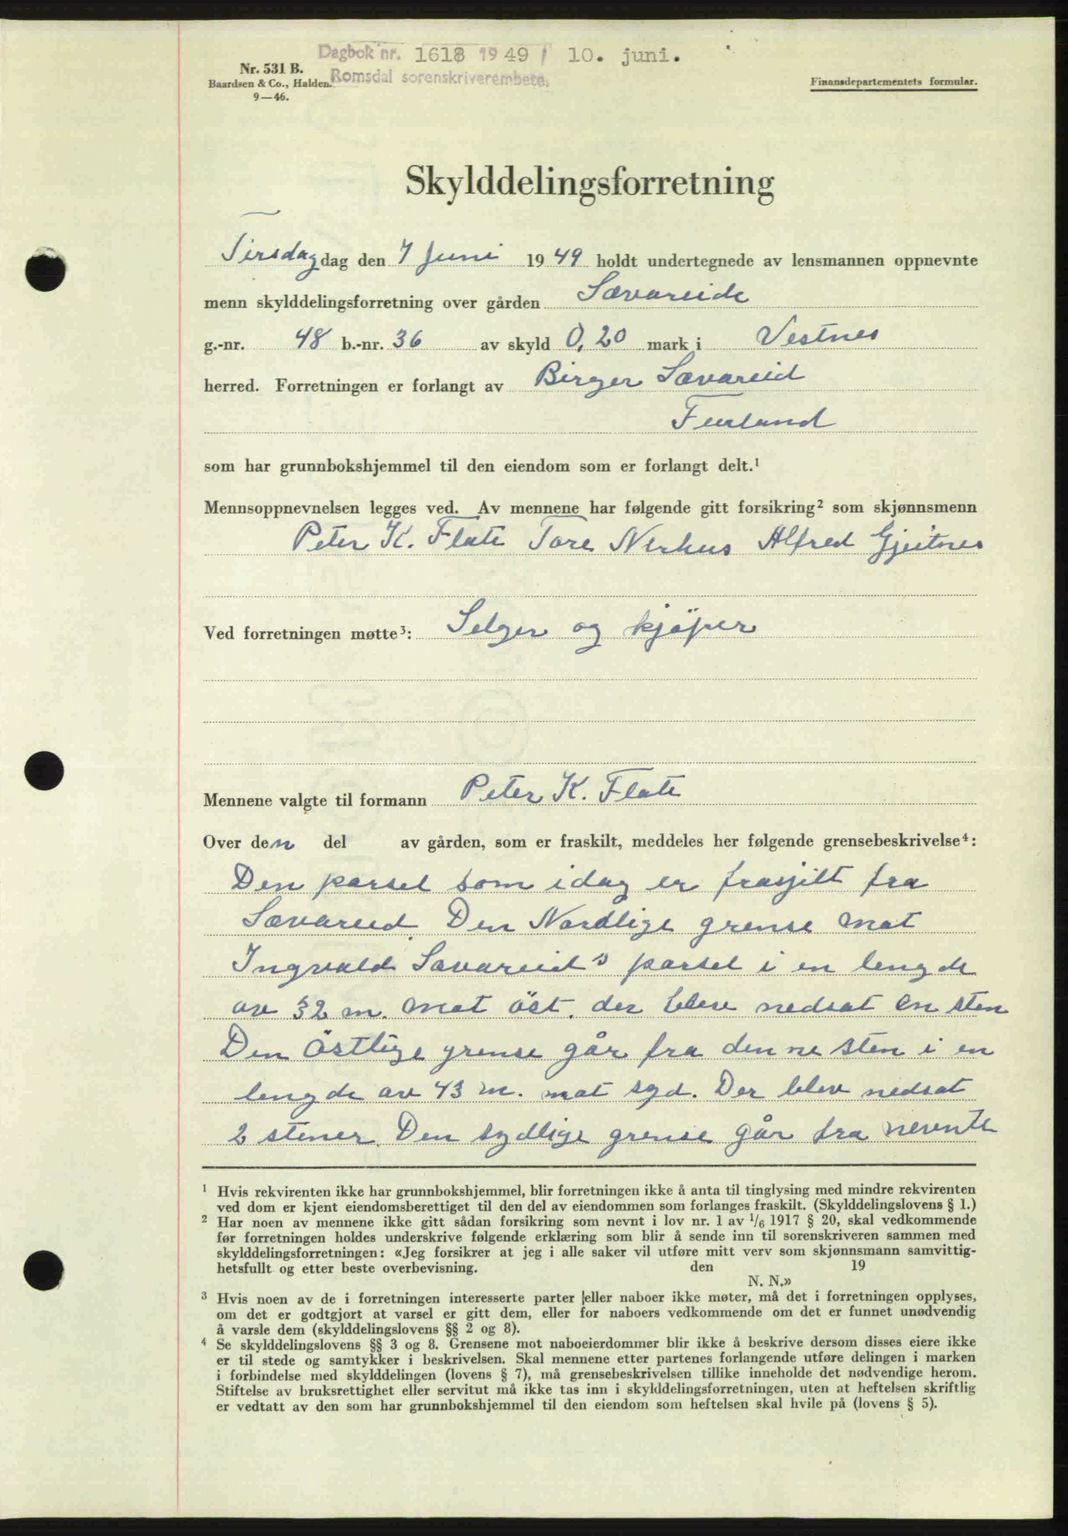 Dagbok nr. 1618 1949 / 10. juni.
Romsdal sorenskriverembete.
Nr. 531 B.
Baardsen & Co., Halden.
9—46.
Finansdepartementets formular.
Skylddelingsforretning
Tirsdag dag den 7 Juni 1949 holdt undertegnede av lensmannen oppnevnte
menn skylddelingsforretning over gården Sævareide
g.-nr. 48 b.-nr. 36 av skyld 0,20 mark i Vestnes
herred. Forretningen er forlangt av Birger Sævareid
Furland
som har grunnbokshjemmel til den eiendom som er forlangt delt.¹
Mennsoppnevnelsen legges ved. Av mennene har følgende gitt forsikring² som skjønnsmenn
Peter K. Flate Tore Nerhus Alfred Gjeitnes
Ved forretningen møtte³: Selger og kjöper
Mennene valgte til formann Peter K. Flate
Over den del av gården, som er fraskilt, meddeles her følgende grensebeskrivelse⁴:
Den parsel som idag er frasjilt fra
Sævareid. Den Nordlige grense mot
Ingvald Sævareid's parsel i en lengde
av 32 m. mot öst. der blev nedsat en sten
Den östlige grense går fra denne sten i en
lengde av 43 m. mot syd. Der blev nedsat
2 stener. Den sydlige grense går fra nevente
¹ Hvis rekvirenten ikke har grunnbokshjemmel, blir forretningen ikke å anta til tinglysing med mindre rekvirenten
ved dom er kjent eiendomsberettiget til den del av eiendommen som forlanges fraskilt. (Skylddelingslovens § 1.)
² Har noen av mennene ikke gitt sådan forsikring som nevnt i lov nr. 1 av 1/6 1917 § 20, skal vedkommende
før forretningen holdes underskrive følgende erklæring som blir å sende inn til sorenskriveren sammen med
skylddelingsforretningen: «Jeg forsikrer at jeg i alle saker vil utføre mitt verv som skjønnsmann samvittig-
hetsfullt og etter beste overbevisning. den 19
N. N.»
³ Hvis noen av de i forretningen interesserte parter eller naboer ikke møter, må det i forretningen opplyses,
om det er godtgjort at varsel er gitt dem, eller for naboers vedkommende om det er funnet unødvendig
å varsle dem (skylddelingslovens §§ 2 og 8).
⁴ Se skylddelingslovens §§ 3 og 8. Grensene mot naboeierdommer blir ikke å beskrive dersom disses eiere ikke
er til stede og samtykker i beskrivelsen. Skal mennene etter partenes forlangende utføre delingen i marken
i forbindelse med skylddelingen (lovens § 7), må grensebeskrivelsen tillike inneholde det nødvendige herom.
Stiftelse av bruksrettighet eller servitut må ikke tas inn i skylddelingsforretningen, uten at heftelsen skriftlig
er vedtatt av den som har grunnbokshjemmel til den eiendom som heftelsen skal hvile på (lovens § 5).